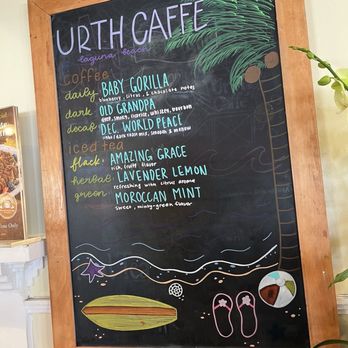 URTH CAFFE
laguna beach
coffee
daily BABY GORILLA
blueberry, citrus, & chocolate notes
dark OLD GRANDPA
deep, smoky, licorice, whiskey, bourbon
decaf DEC. WORLD PEACE
smooth & mellow
iced tea
black AMAZING GRACE
rich, fruity flavor
herbal LAVENDER LEMON
refreshing with citrus aroma
green MOROCCAN MINT
sweet, minty-green flavor
Only